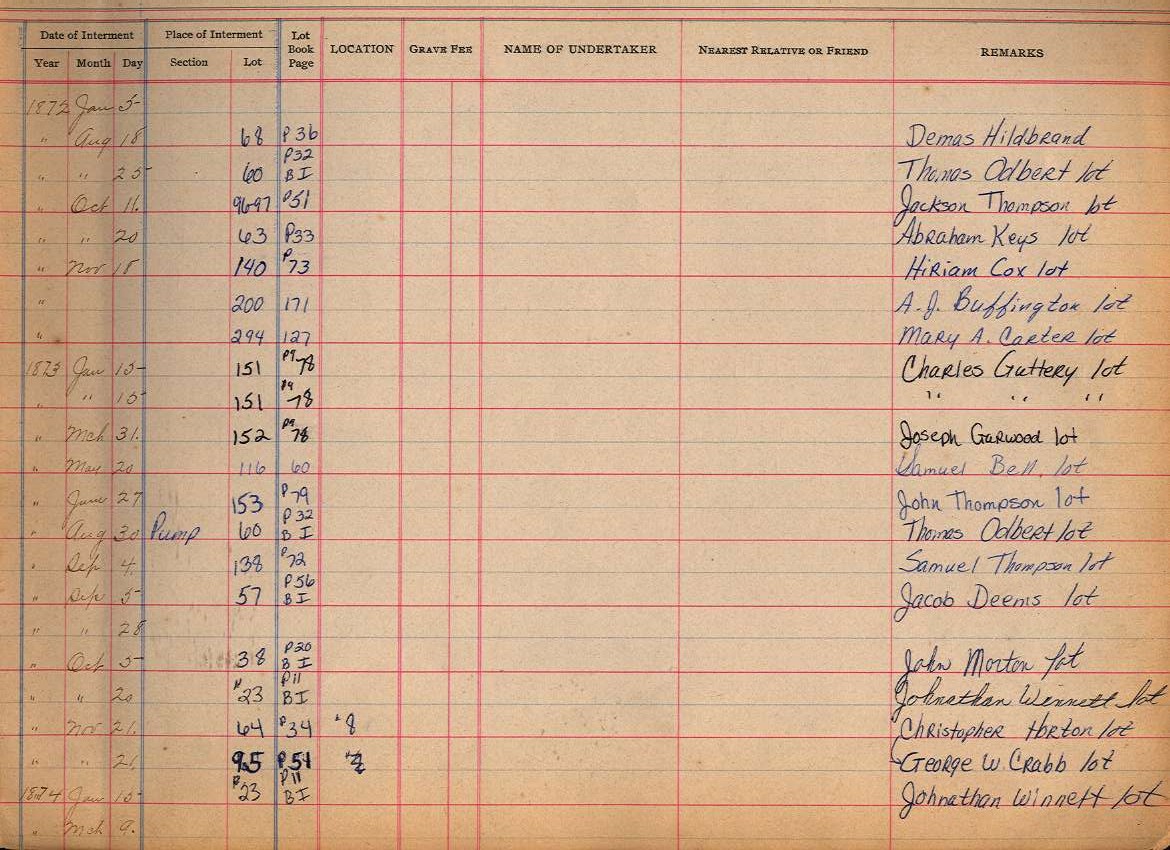 Date of Interment Place of Interment Lot Book Page LOCATION GRAVE FEE NAME OF UNDERTAKER NEAREST RELATIVE OR FRIEND REMARKS
Year Month Day Section Lot
1872 Jan 5
" Aug 18 68 P36 Demas Hildbrand
" " 25 60 P32 BI Thomas Odbert lot
" Oct 11. 96-97 P51 Jackson Thompson lot
" " 20 63 P33 Abraham Keys lot
" Nov 18 140 P73 HiRiam Cox lot
" 200 171 A.J. Buffington lot
" 294 127 Mary A. Carter lot
1873 Jan 15 151 Pg 78 Charles Guttery lot
" " 15 151 Pg 78 " " "
" Mch 31. 152 Pg 78 Joseph Garwood lot
" May 20 116 60 Samuel Bell. lot
" June 27 153 P79 John Thompson lot
" Aug 30 Pump 60 P32 BI Thomas Odbert lot
" Sep 4. 138 P72 Samuel Thompson lot
" Sep 5 57 P56 BI Jacob Deems lot
" " 28
" Oct 5 38 P20 BI John Morton lot
" " 20 23 P11 BI Johnathan Winnett lot
" Nov 21. 64 P34 "8 Christopher Horton lot
" " 21. 95 P51 George W. Crabb lot
1874 Jan 15 23 P11 BI Johnathan Winnett lot
" Mch 9.